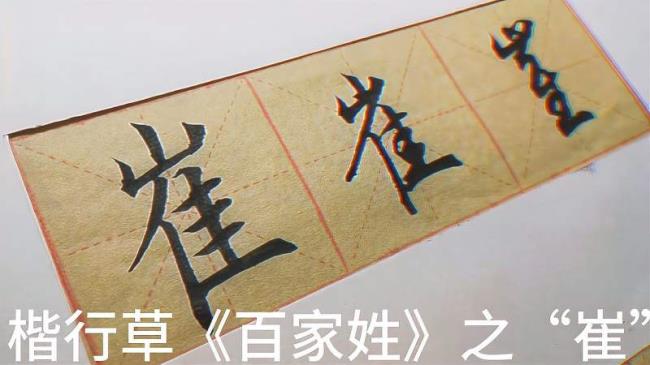 崔崔崔
楷行草《百家姓》之“崔”